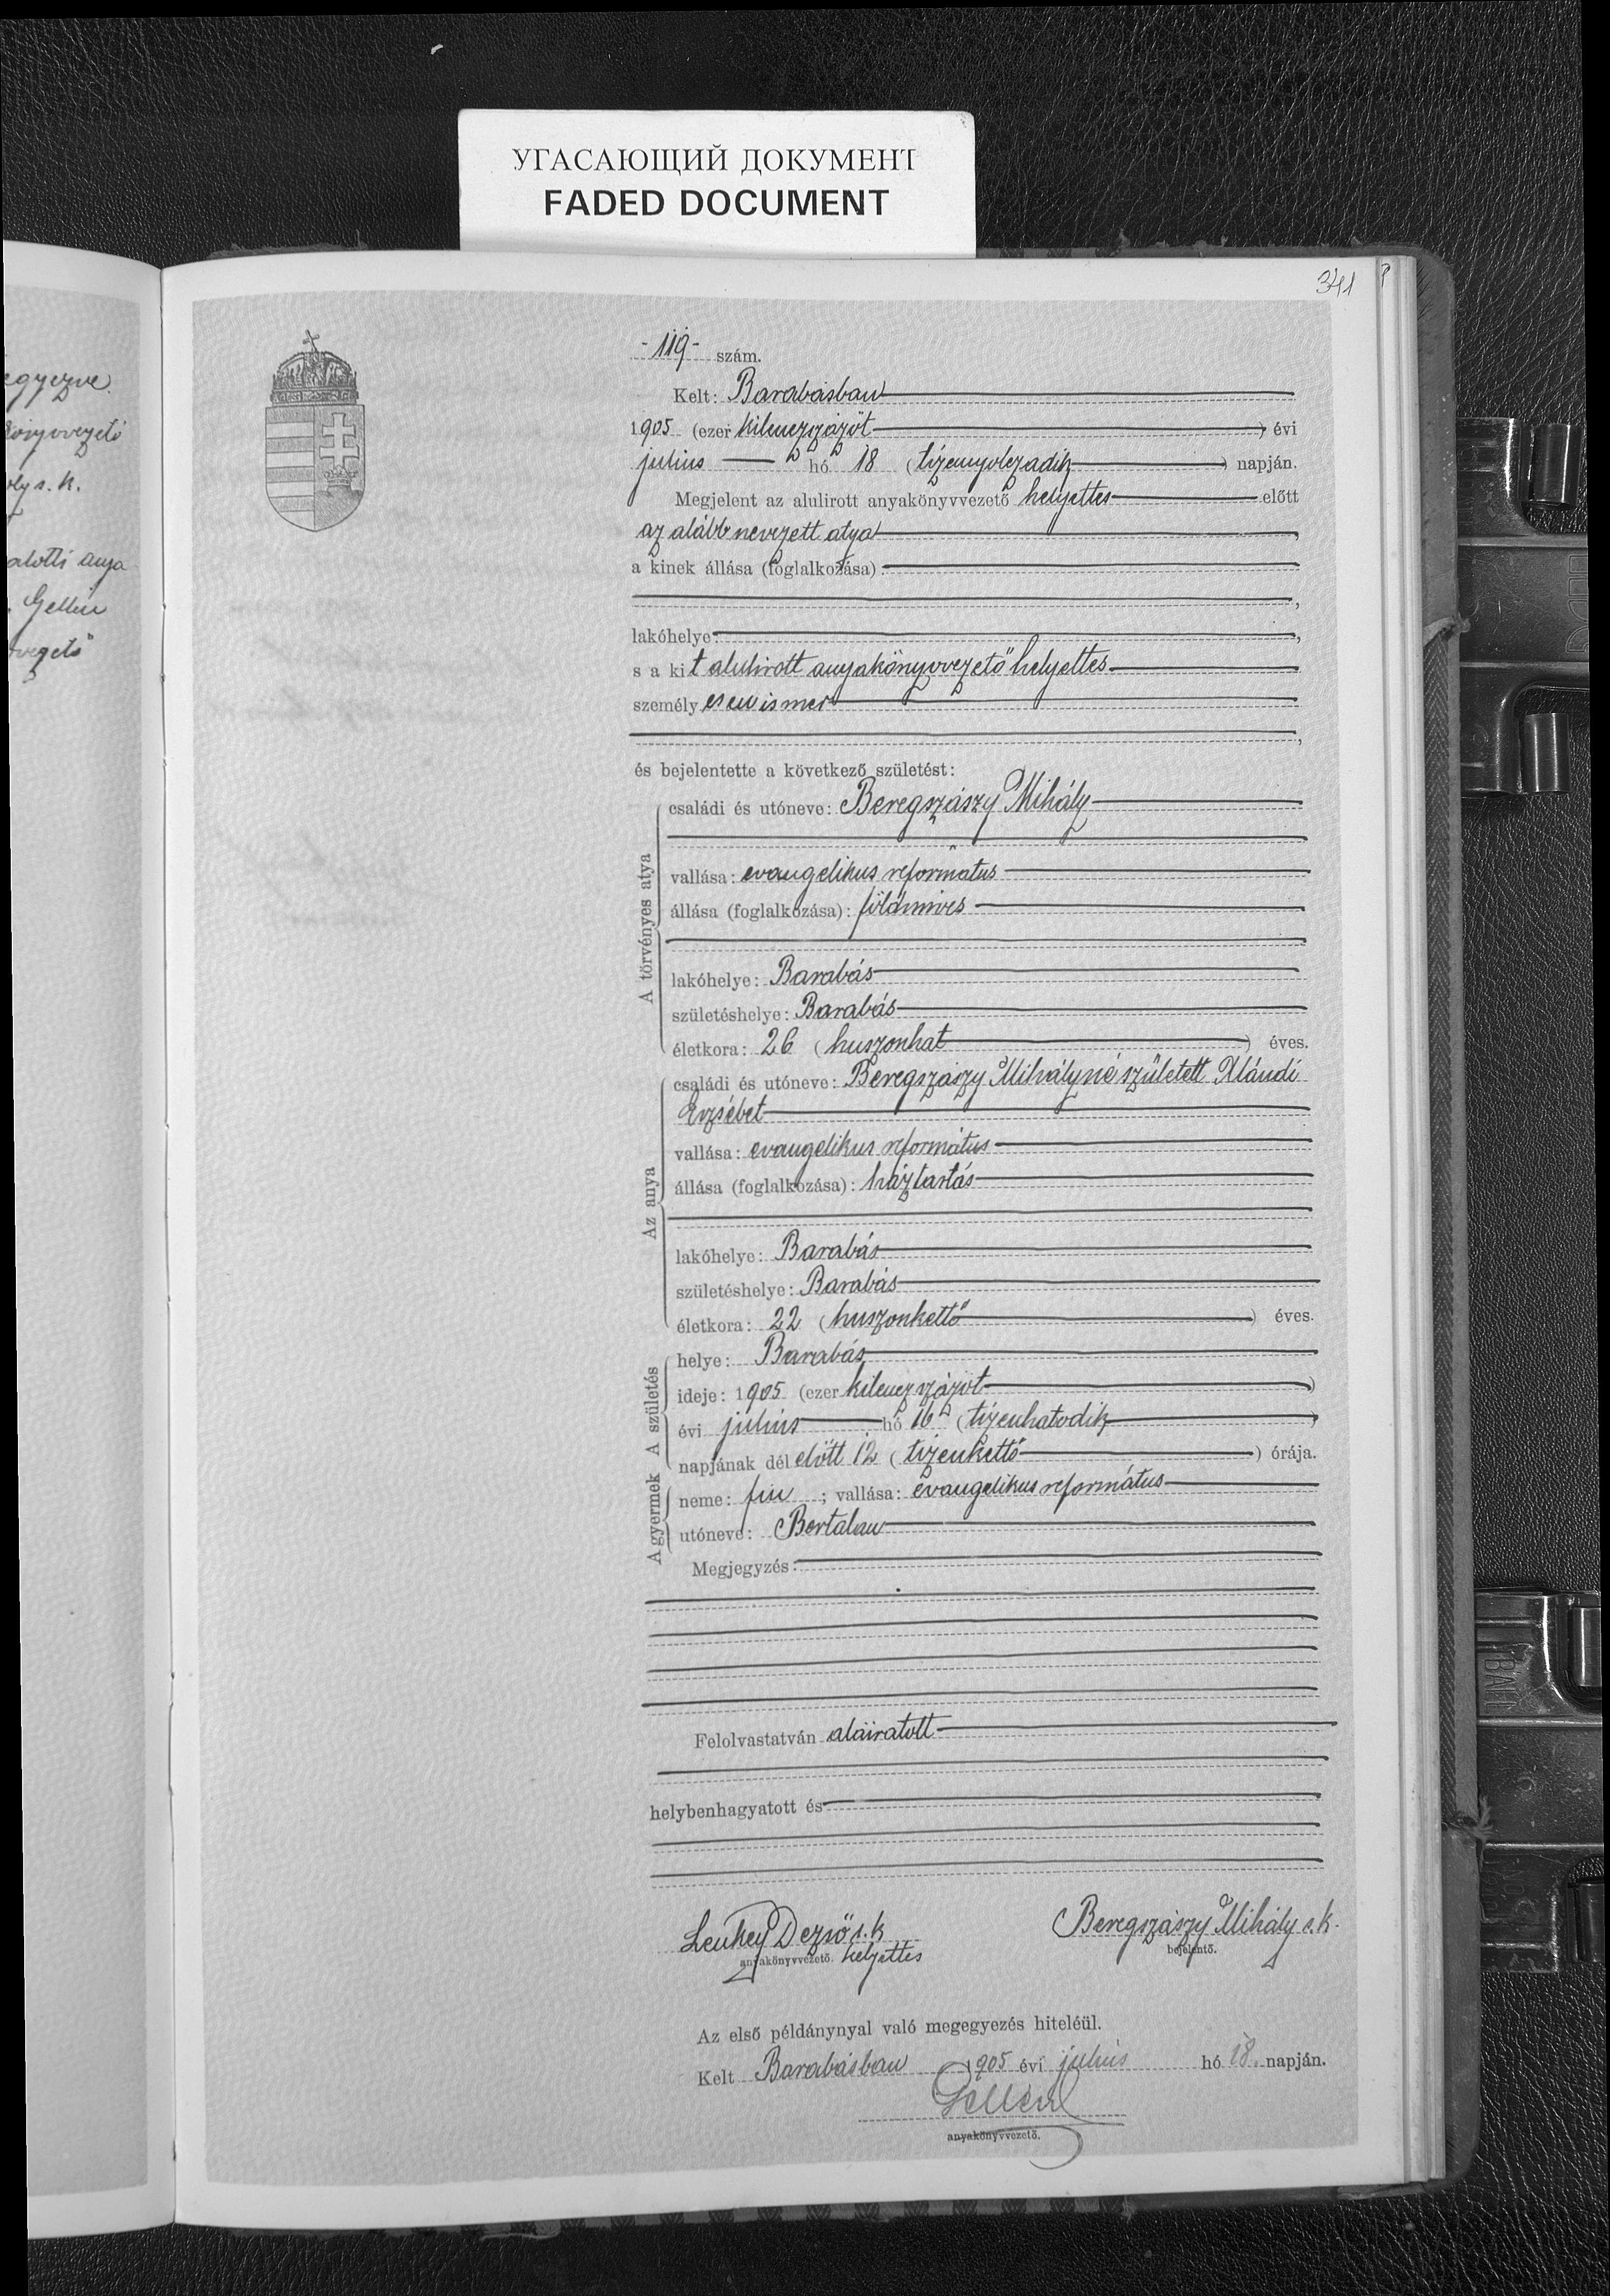 УГАСАЮЩИЙ ДОКУМЕНТ
FADED DOCUMENT
341
egyezve
könyvvezető
oly s. k.
alotti anya
Gellén
vezető
-119- szám.
Kelt: Barabásban
1905 (ezer kilenczszázöt) évi
julius hó 18 (tizennyolczadik) napján.
Megjelent az alulirott anyakönyvvezető helyettes előtt
az alább nevezett atya,
a kinek állása (foglalkozása):
lakóhelye:
s a kit alulirott anyakönyvvezető helyettes
személyesen ismer
és bejelentette a következő születést:
A törvényes atya
családi és utóneve: Beregszászy Mihály
vallása: evangelikus református
állása (foglalkozása): földmives
lakóhelye: Barabás
születéshelye: Barabás
életkora: 26 (huszonhat) éves.
Az anya
családi és utóneve: Beregszászy Mihályné született
Erzsébet
vallása: evangelikus református
állása (foglalkozása): háztartás
lakóhelye: Barabás
születéshelye: Barabás
életkora: 22 (huszonkettő) éves.
A születés
helye: Barabás
ideje: 1905 (ezer kilenczszázöt)
évi julius hó 16 (tizenhatodik)
napjának délelőtt 12 (tizenkettő) órája.
A gyermek
neme: fiu; vallása: evangelikus református
utóneve: Bertalan
Megjegyzés:
Felolvastatván aláiratott
helybenhagyatott és
Dezső s. k. Beregszászy Mihály s. k.
anyakönyvvezető. helyettes bejelentő.
Az első példánynyal való megegyezés hiteléül.
Kelt Barabásban 1905 évi julius hó 18. napján.
Gellén
anyakönyvvezető.